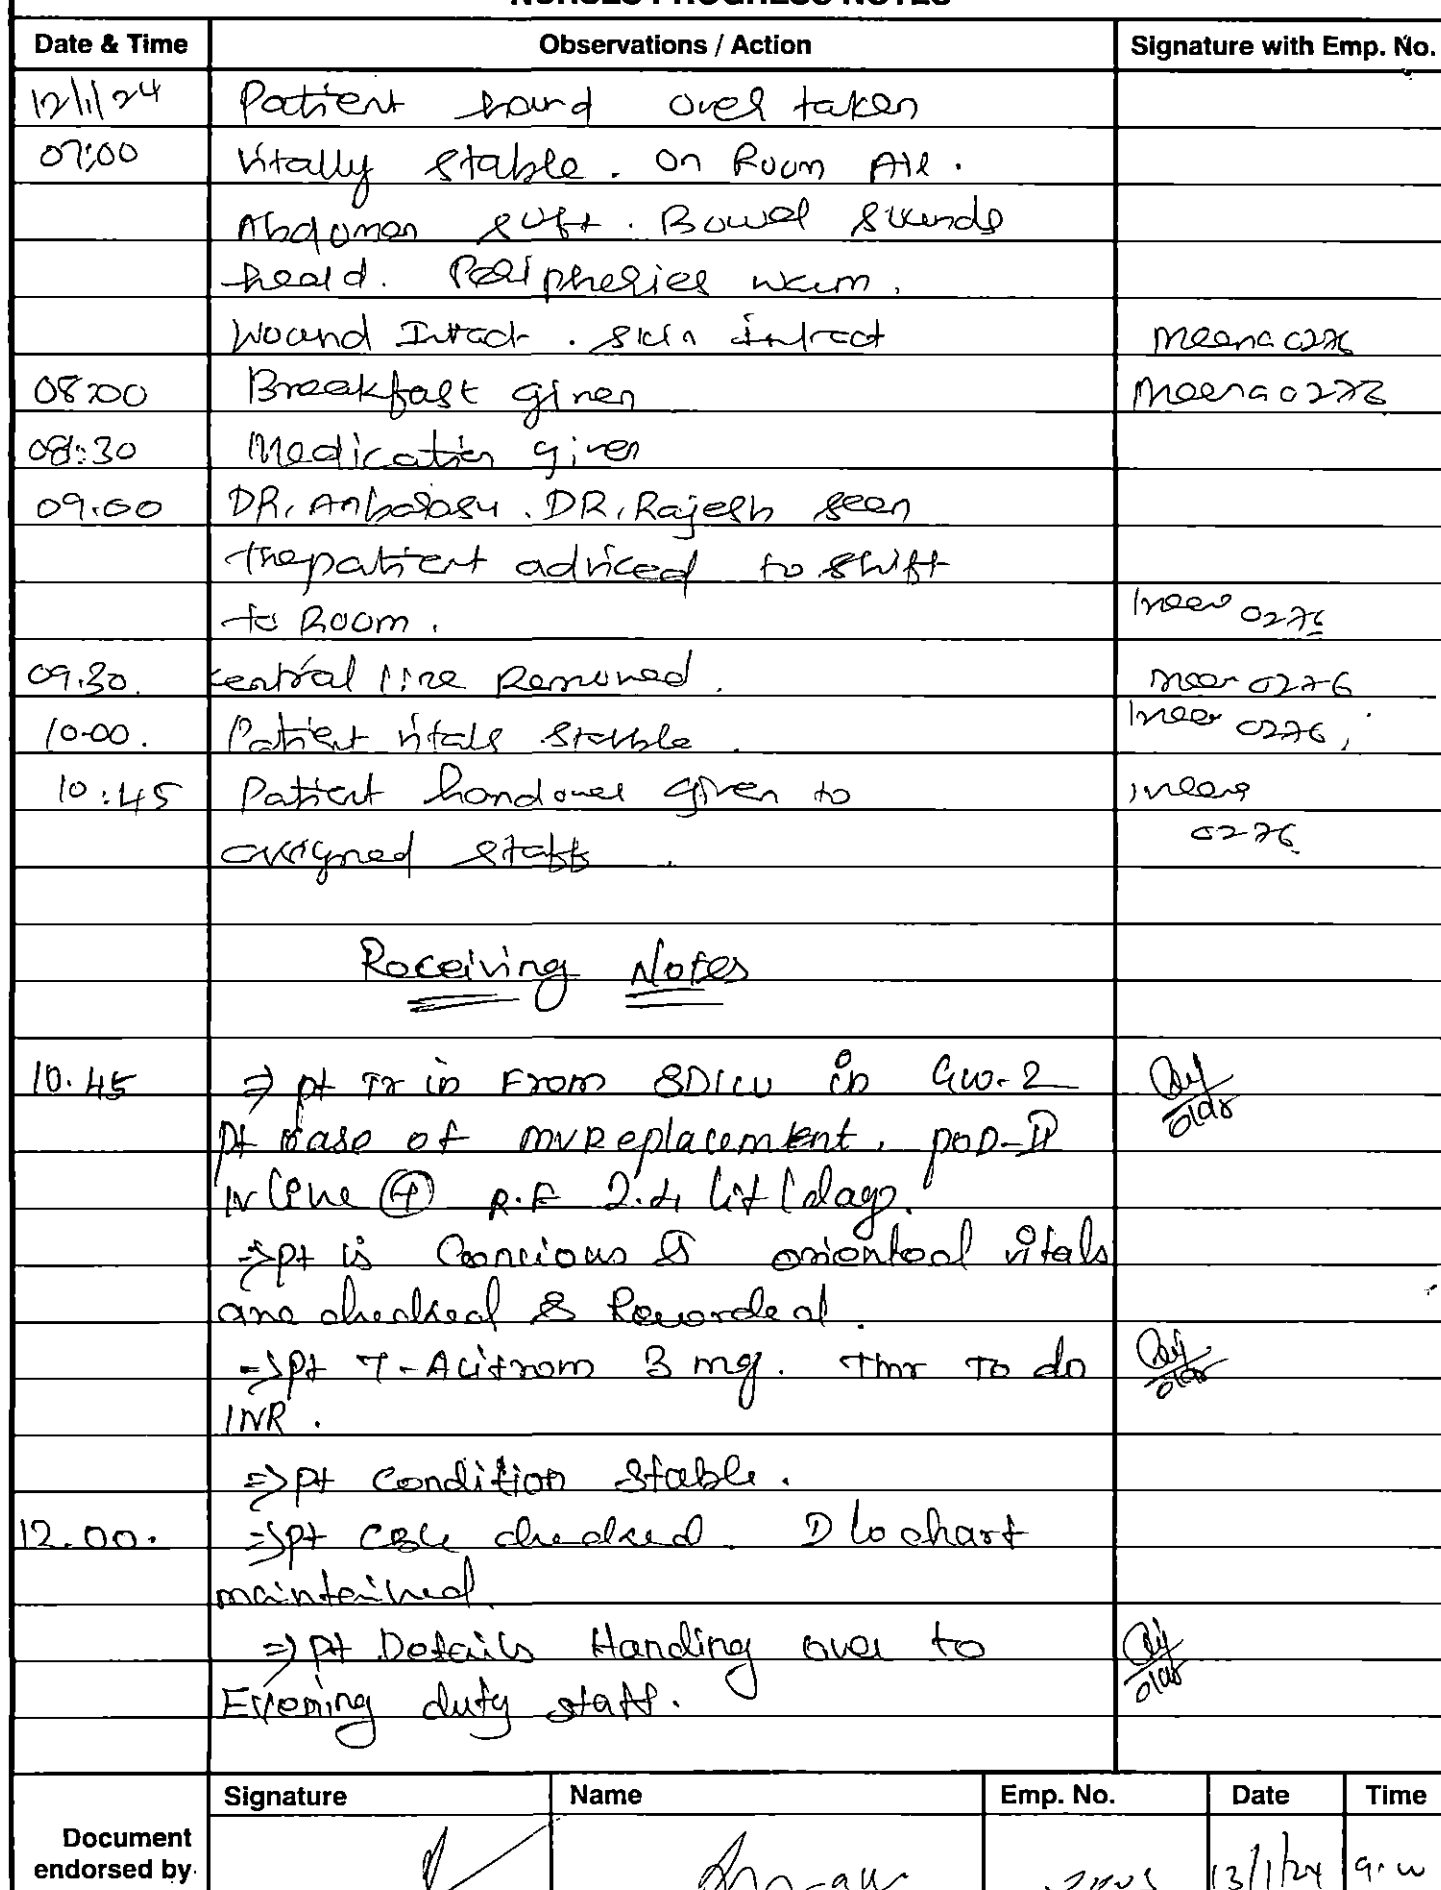 NURSES PROGRESS NOTES
Date & Time Observations / Action Signature with Emp. No.
12/1/24 Patient hand over taken
07:00 Vitally stable. On Room Air.
Abdomen soft. Bowel sounds
heard. Peripheries warm.
Wound Intact. skin intact Meena 0276
08:00 Breakfast given Meena 0276
08:30 Medication given
09.00 DR. Anbarasu. DR. Rajesh seen
the patient adviced to shift
to Room. Meena 0276
09.30. central line Removed. Meena 0276
10.00. Patient vitals stable. Meena 0276
10:45 Patient handover given to Meena
assigned staffs. 0276
Receiving Notes
10.45 ⇒ pt Tr in From SDICU in GW-2
pt case of MV Replacement. POD-II
IV line ⊕ R.F 2.4 lit/day.
⇒ pt is Concious & oriented vitals
are checked & Recorded.
⇒ pt T-Acitrom 3 mg. Tmr To do
INR.
⇒ pt Condition Stable.
12.00. ⇒ pt checked. I/o chart
maintained
⇒ pt Details Handing over to
Evening duty staff.
Signature Name Emp. No. Date Time
Document
endorsed by
13/1/24